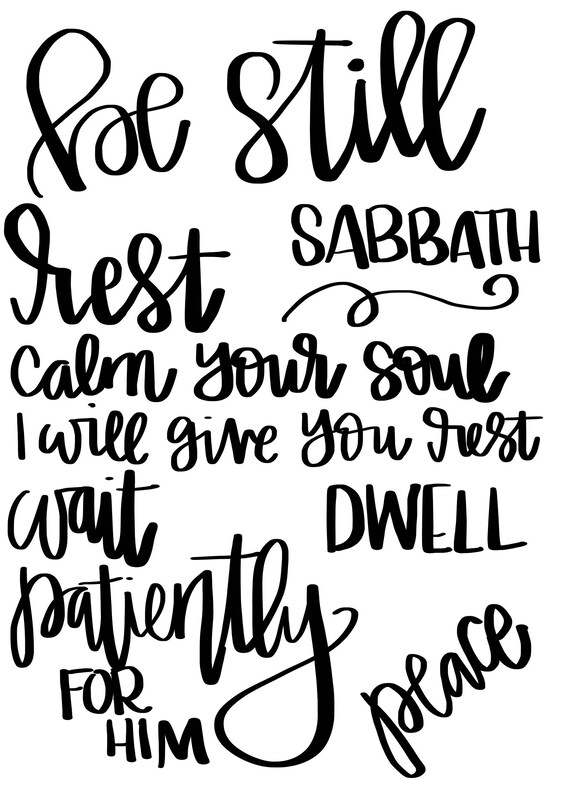 be still
rest SABBATH
calm your soul
I will give you rest
wait DWELL
patiently
FOR
HIM peace